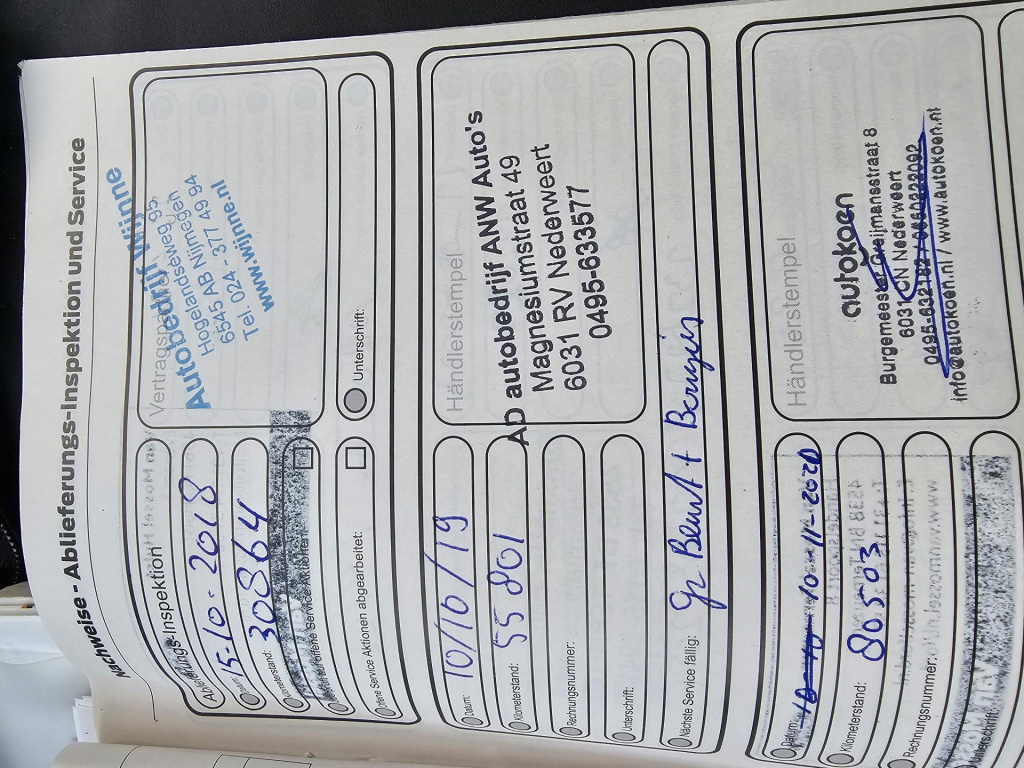 Nachweise - Ablieferungs-Inspektion und Service
Ablieferungs-Inspektion
15-10-2018
Kilometerstand:
30864
Offene Service Aktionen abgearbeitet:
Autobedrijf Wijnne
Hogelandseweg 95
6545 AB Nijmegen
Tel. 024 - 377 49 94
www.wijnne.nl
Unterschrift:
Datum: 10/10/19
Kilometerstand: 55801
Rechnungsnummer:
Unterschrift:
Nächste Service fällig:
Händlerstempel
AD autobedrijf ANW Auto's
Magnesiumstraat 49
6031 RV Nederweert
0495-633577
Datum: 10-11-2020
Kilometerstand: 80503
Rechnungsnummer:
Unterschrift:
Händlerstempel
autokoen
Burgemeester Greijmansstraat 8
6031 CN Nederweert
info@autokoen.nl / www.autokoen.nl